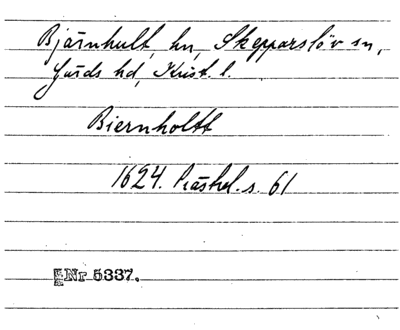 Bjärnhult, hn, Skepparslöv sn,
Gärds hd, Krist. l.
Biernholtt
1624. s. 61
Nr 5337.